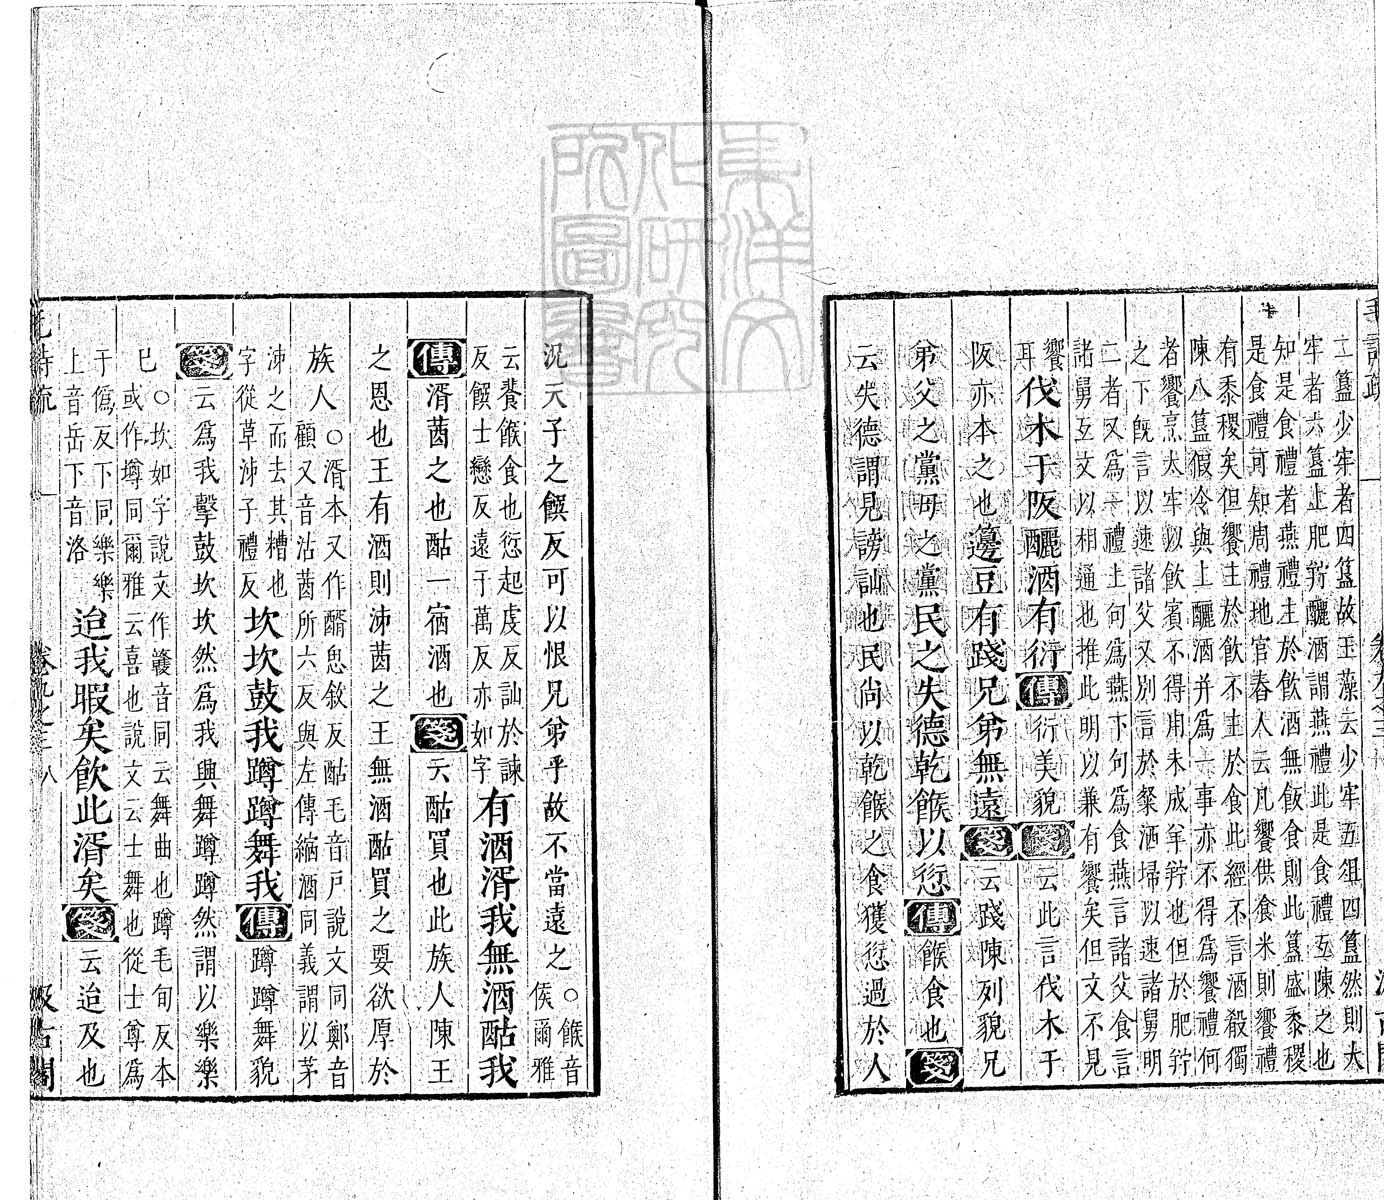 二簋少牢者四簋故玉藻云少牢五俎四簋然則大
牢者六簋上肥羜釃酒謂燕禮此是食禮互陳之也
知是食禮者燕禮主於飲酒無飯食則此簋盛黍稷
是食禮可知周禮地官舂人云凡饗供食米則饗禮
有黍稷矣但饗主於飲不主於食此經不言酒殽獨
陳八簋假令與上釃酒并爲一事亦不得爲饗禮何
者饗烹太牢以飲賓不得用未成羊羜也但於肥羜
之下旣言以速諸父又別言於粲洒埽以速諸舅明
二者又爲二禮上句爲燕下句爲食燕言諸父食言
諸舅互文以相通也推此明以兼有饗矣但文不見
饗耳伐木于阪釃酒有衍傳衍美貌箋云此言伐木于
阪亦本之也籩豆有踐兄弟無遠箋云踐陳列貌兄
弟父之黨母之黨民之失德乾餱以愆傳餱食也箋
云失德謂見謗訕也民尚以乾餱之食獲愆過於人
況天子之饌反可以恨兄弟乎故不當遠之○餱音侯爾雅
云餥餱食也愆起虔反訕於諫反饌士戀反遠于萬反亦如字有酒湑我無酒酤我
傳湑茜之也酤一宿酒也箋云酤買也此族人陳王
之恩也王有酒則沛茜之王無酒酤買之要欲厚於
族人○湑本又作醑思敘反酤毛音戶說文同鄭音顧又音沽茜所六反與左傳縮酒同義謂以茅
沛之而去其糟也字從草沛子禮反坎坎鼓我蹲蹲舞我傳蹲蹲舞貌
箋云爲我擊鼓坎坎然爲我興舞蹲蹲然謂以樂樂
巳○坎如字說文作竷音同云舞曲也蹲毛旬反本或作墫同爾雅云喜也說文云士舞也從士尊爲
于僞反下同樂樂上音岳下音洛迨我暇矣飲此湑矣箋云迨及也
毛詩疏 卷九之三 八 汲古閣
東洋文化研究所圖書